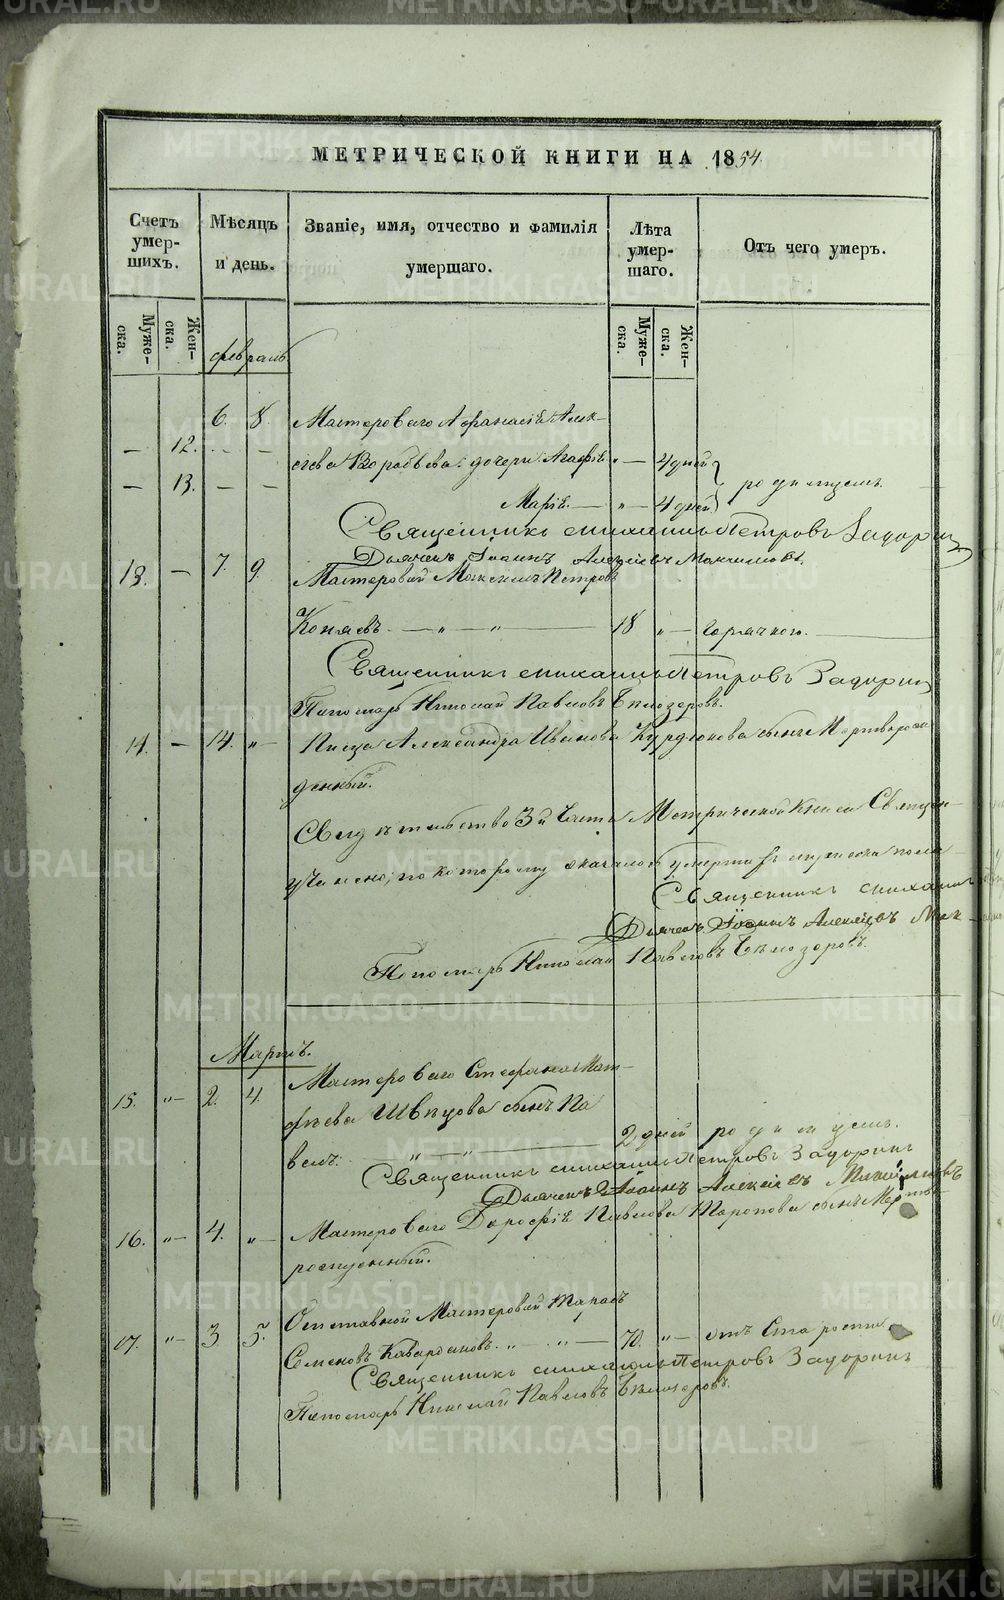 МЕТРИЧЕСКОЙ КНИГИ НА 1854.
Счетъ умер-шихъ.
Мѣсяцъ и день.
Званіе, имя, отчество и фамилія умершаго.
Лѣта умер-шаго.
Отъ чего умеръ.
Муже-ска.
Жен-ска.
Муже-ска.
Жен-ска.
февраль
6. 8. Мастероваго Афанасія Алек-
— 12. — — сѣева дочери Агафія „ — 4 дней
— 13. — — Марія. — „ — 4 дней родимцемъ.
Священникъ Михаилъ Петровъ Задоринъ
Дьячекъ Іоаннъ Алексѣевъ Максимовъ.
13. — 7. 9. Мастеровый Максимъ Петровъ
Коняевъ. — „ — „ — 18 „ — горячкою.
Священникъ Михаилъ Петровъ Задоринъ
Пономарь Николай Павловъ Бѣлозеровъ.
14. — 14. „ Писца Александра Иванова Курдюкова сынъ Мертворож
денный.
Свидѣтельство 3й Части Метрической Книги
Священникъ Михаилъ
Дьячекъ Іоаннъ Алексѣевъ Мак-
Пономарь Николай Павловъ Бѣлозеровъ.
Мартъ.
15. „ 2. 4. Мастероваго Стефана Мат-
фѣева Швецова сынъ Па
велъ. — „ — „ — 2 дней родимцемъ.
Священникъ Михаилъ Петровъ Задоринъ
Дьячекъ Іоаннъ Алексѣевъ Максимовъ
16. „ 4. „ Мастероваго Дорофѣя Павлова сынъ Мертво
рожденный.
17. „ 3 5. Отставной Мастеровый Тарасъ
Семеновъ — „ — „ — 70. „ — отъ Старости
Священникъ Михаилъ Петровъ Задоринъ
Пономарь Николай Павловъ Бѣлозеровъ.
METRIKI.GASO-URAL.RU